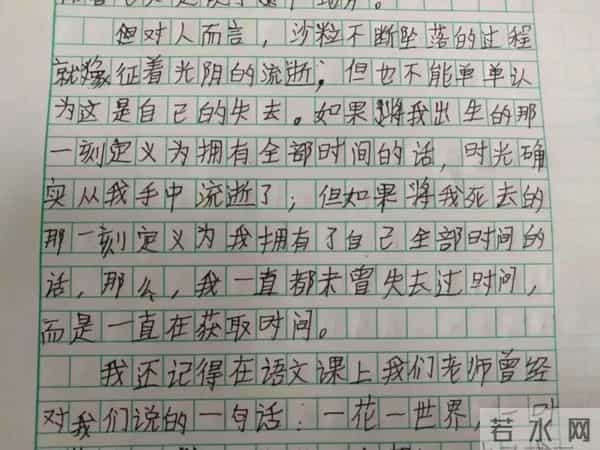 但对人而言，沙粒不断坠落的过程
就像征着光阴的流逝，但也不能单单认
为这是自己的失去。如果将我出生的那
一刻定义为拥有全部时间的话，时光确
实从我手中流逝了；但如果将我死去的
那一刻定义为我拥有了自己全部时间的
话，那么，我一直都未曾失去过时间，
而是一直在获取时间。
我还记得在语文课上我们老师曾经
对我们说的一句话：一花一世界，
若水网